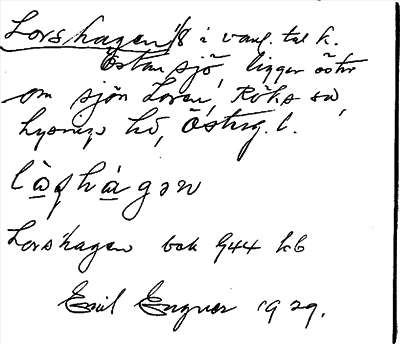 Lorshagen 1/8 i vanl. tal k.
Östansjö, ligger öster
om sjön Loren, Röks sn,
Lysings hd, Östergl.
làshàgən
Lorshagen bok 944 kb
Emil Engner 1929.